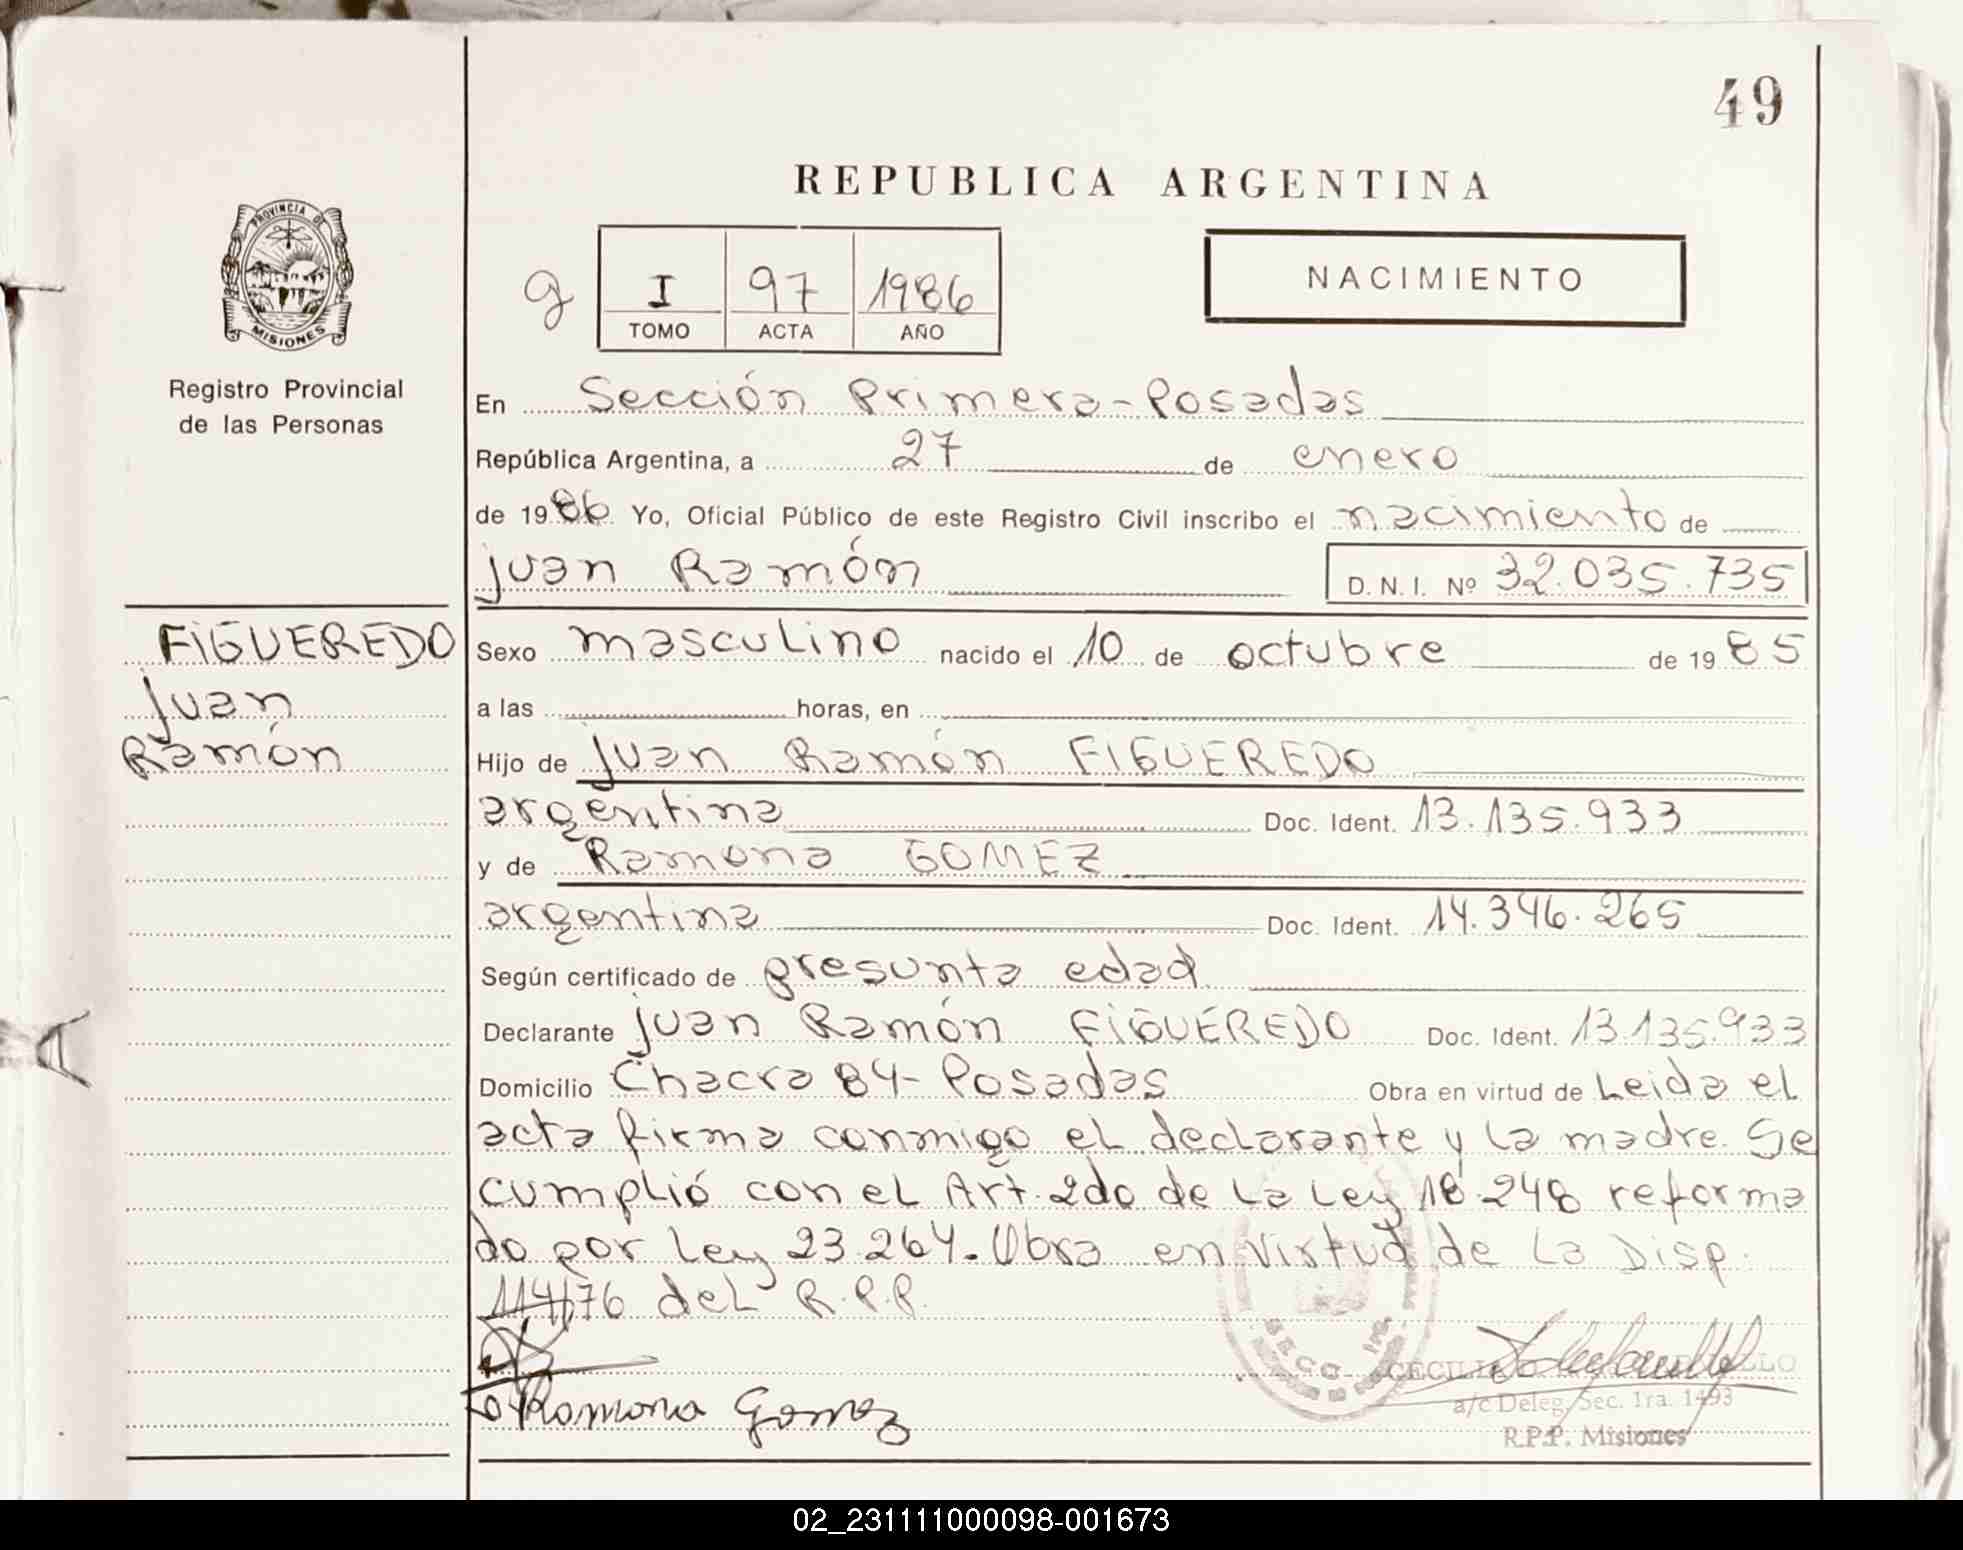 49
REPUBLICA ARGENTINA
PROVINCIA DE
MISIONES
Registro Provincial
de las Personas
g
I 97 1986
TOMO ACTA AÑO
NACIMIENTO
En Sección Primera - Posadas
República Argentina, a 27 de enero
de 1986 Yo, Oficial Público de este Registro Civil inscribo el nacimiento de
Juan Ramón D.N.I. Nº 32.035.735
FIGUEREDO
Juan
Ramón
Sexo masculino nacido el 10 de octubre de 1985
a las horas, en
Hijo de Juan Ramón FIGUEREDO
argentina Doc. Ident. 13.135.933
y de Ramona GOMEZ
argentina Doc. Ident. 14.346.265
Según certificado de presunta edad
Declarante Juan Ramón FIGUEREDO Doc. Ident. 13.135.933
Domicilio Chacra 84 - Posadas Obra en virtud de Leida el
acta firma conmigo el declarante y la madre. Se
cumplió con el Art. 2do de la Ley 18.248 reforma
do por Ley 23.264. Obra en virtud de la Disp.
114/76 del R.P.P.
Ramona Gomez
CECILIO
a/c Deleg. Sec. 1ra. 1493
R.P.P. Misiones
02_231111000098-001673